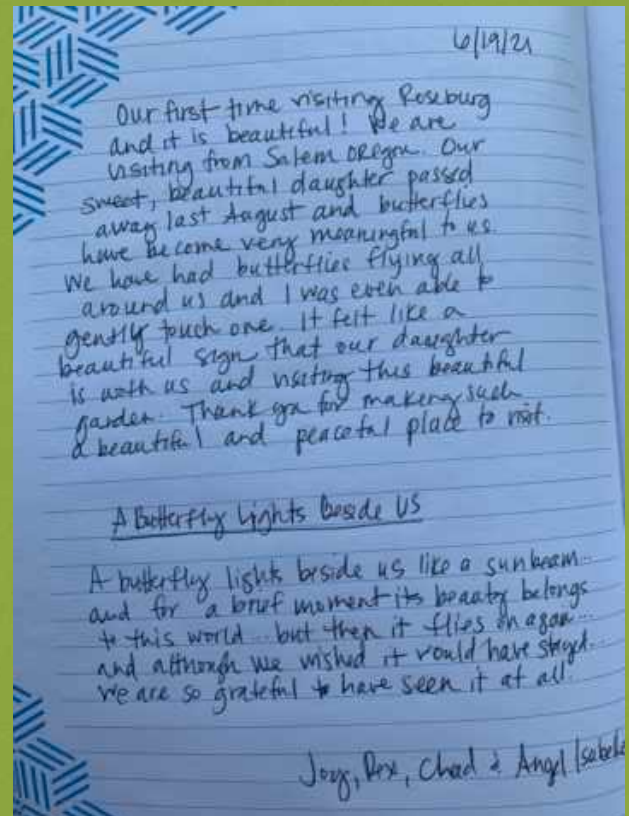 6/19/21
Our first time visiting Roseburg
and it is beautiful! We are
visiting from Salem Oregon. Our
sweet, beautiful daughter passed
away last August and butterflies
have become very meaningful to us.
We have had butterflies flying all
around us and I was even able to
gently touch one. It felt like a
beautiful sign that our daughter
is with us and visiting this beautiful
garden. Thank you for making such
a beautiful and peaceful place to visit.
A Butterfly Lights Beside Us
A butterfly lights beside us like a sunbeam...
and for a brief moment its beauty belongs
to this world... but then it flies on again...
and although we wished it would have stayed...
we are so grateful to have seen it at all.
Joy, Rex, Chad & Angel